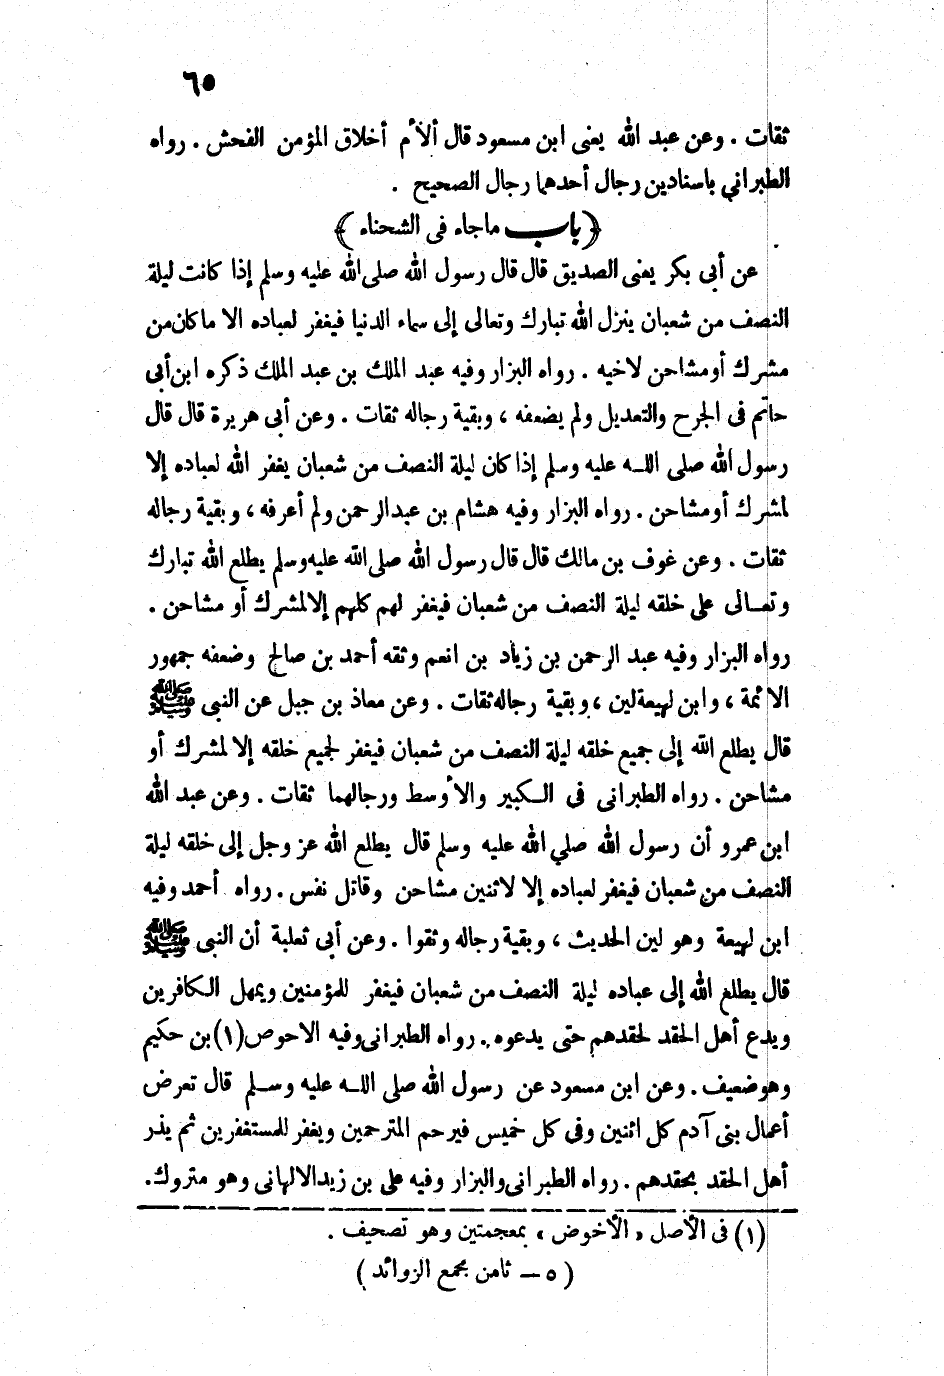 ٦٥
ثقات . وعن عبد الله يعنى ابن مسعود قال ألأم أخلاق المؤمن الفحش . رواه
الطبراني باسنادين رجال أحدهما رجال الصحيح .
﴿ باب ماجاء فى الشحناء ﴾
عن أبى بكر يعنى الصديق قال قال رسول الله صلى الله عليه وسلم إذا كانت ليلة
النصف من شعبان ينزل الله تبارك وتعالى إلى سماء الدنيا فيغفر لعباده الا ما كان من
مشرك أو مشاحن لاخيه . رواه البزار وفيه عبد الملك بن عبد الملك ذكره ابن أبى
حاتم فى الجرح والتعديل ولم يضعفه ، وبقية رجاله ثقات . وعن أبى هريرة قال قال
رسول الله صلى اللـه عليه وسلم إذا كان ليلة النصف من شعبان يغفر الله لعباده إلا
لمشرك أو مشاحن . رواه البزار وفيه هشام بن عبدالرحمن ولم أعرفه ، وبقية رجاله
ثقات . وعن غوف بن مالك قال قال رسول الله صلى الله عليه وسلم يطلع الله تبارك
وتعـالى على خلقه ليلة النصف من شعبان فيغفر لهم كلهم إلا لمشرك أو مشاحن .
رواه البزار وفيه عبد الرحمن بن زياد بن انعم وثقه أحمد بن صالح وضعفه جمهور
الائمة ، وابن لهيعة لين ، وبقية رجاله ثقات . وعن معاذ بن جبل عن النبى ﷺ
قال يطلع الله إلى جميع خلقه ليلة النصف من شعبان فيغفر لجميع خلقه إلا لمشرك أو
مشاحن . رواه الطبرانى فى الـكبير والأوسط ورجالهما ثقات . وعن عبد الله
ابن عمرو أن رسول الله صلي الله عليه وسلم قال يطلع الله عز وجل إلى خلقه ليلة
النصف من شعبان فيغفر لعباده إلا لاثنين مشاحن وقاتل نفس . رواه أحمد وفيه
ابن لهيعة وهو لين الحديث ، وبقية رجاله وثقوا . وعن أبي ثعلبة أن النبى ﷺ
قال يطلع الله إلى عباده ليلة النصف من شعبان فيغفر للمؤمنين ويمهل الـكافرين
ويدع أهل الحقد لحقدهم حتى يدعوه . رواه الطبرانى وفيه الاحوص (١) بن حكيم
وهو ضعيف . وعن ابن مسعود عن رسول الله صلى اللـه عليه وسـلم قال تعرض
أعمال بنى آدم كل اثنين وفى كل خميس فيرحم المترحمين ويغفر للمستغفرين ثم يذر
أهل الحقد بحقدهم . رواه الطبرانى والبزار وفيه على بن زيد الالهانى وهو متروك .
(١) فى الأصل « الأخوض » بمعجمتين وهو تصحيف .
( ٥ – ثامن مجمع الزوائد )